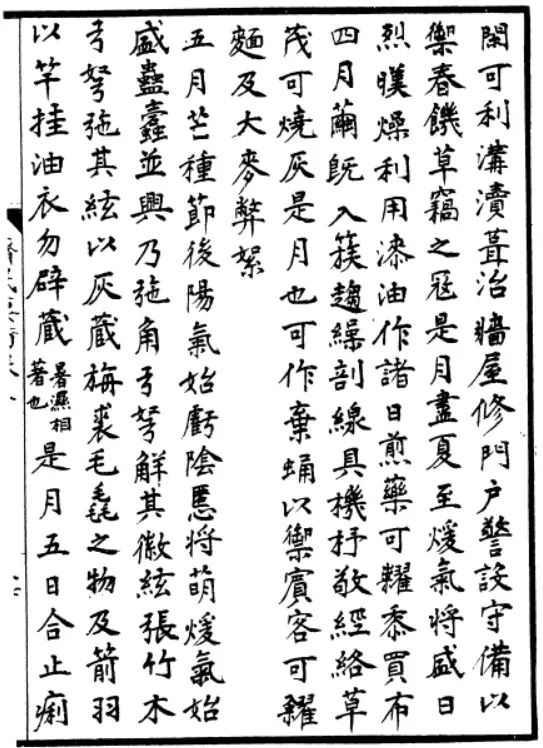 閑可利溝瀆葺治牆屋修門户警設守備以
禦春饑草竊之冦是月盡夏至煖氣将盛日
烈暵燥利用漆油作諸日煎藥可糶黍買布
四月繭既入簇趨繰剖線具機杼敬經絡草
茂可燒灰是月也可作棄蛹以禦賓客可糴
麵及大麥弊絮
五月芒種節後陽氣始虧陰慝将萌煖氣始
盛蟲蠹並興乃弛角弓弩解其徽絃張竹木
弓弩弛其絃以灰蔵旃裘毛毳之物及箭羽
以竿挂油衣勿辟蔵暑濕相著也是月五日合止痢